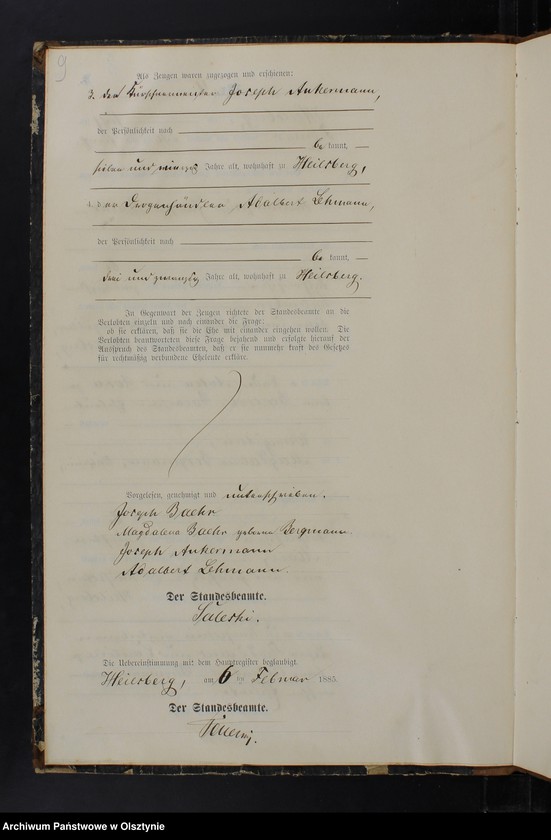 9
Als Zeugen waren zugezogen und erschienen:
3. der Joseph Ankermann,
der Persönlichkeit nach
be kannt,
sieben und Jahre alt, wohnhaft zu Heilsberg,
4. der Drogenhändler Adalbert Lehmann,
der Persönlichkeit nach
be kannt,
drei und zwanzig Jahre alt, wohnhaft zu Heilsberg.
In Gegenwart der Zeugen richtete der Standesbeamte an die
Verlobten einzeln und nach einander die Frage:
ob sie erklären, daß sie die Ehe mit einander eingehen wollen. Die
Verlobten beantworteten diese Frage bejahend und erfolgte hierauf der
Ausspruch des Standesbeamten, daß er sie nunmehr kraft des Gesetzes
für rechtmäßig verbundene Eheleute erkläre.
Vorgelesen, genehmigt und unterschrieben.
Joseph Baehr
Magdalena Baehr geborne Bergmann.
Joseph Ankermann
Adalbert Lehmann.
Der Standesbeamte.
Die Uebereinstimmung mit dem Hauptregister beglaubigt
Heilsberg, am 6 ten Februar 1885.
Der Standesbeamte.
Archiwum Państwowe w Olsztynie